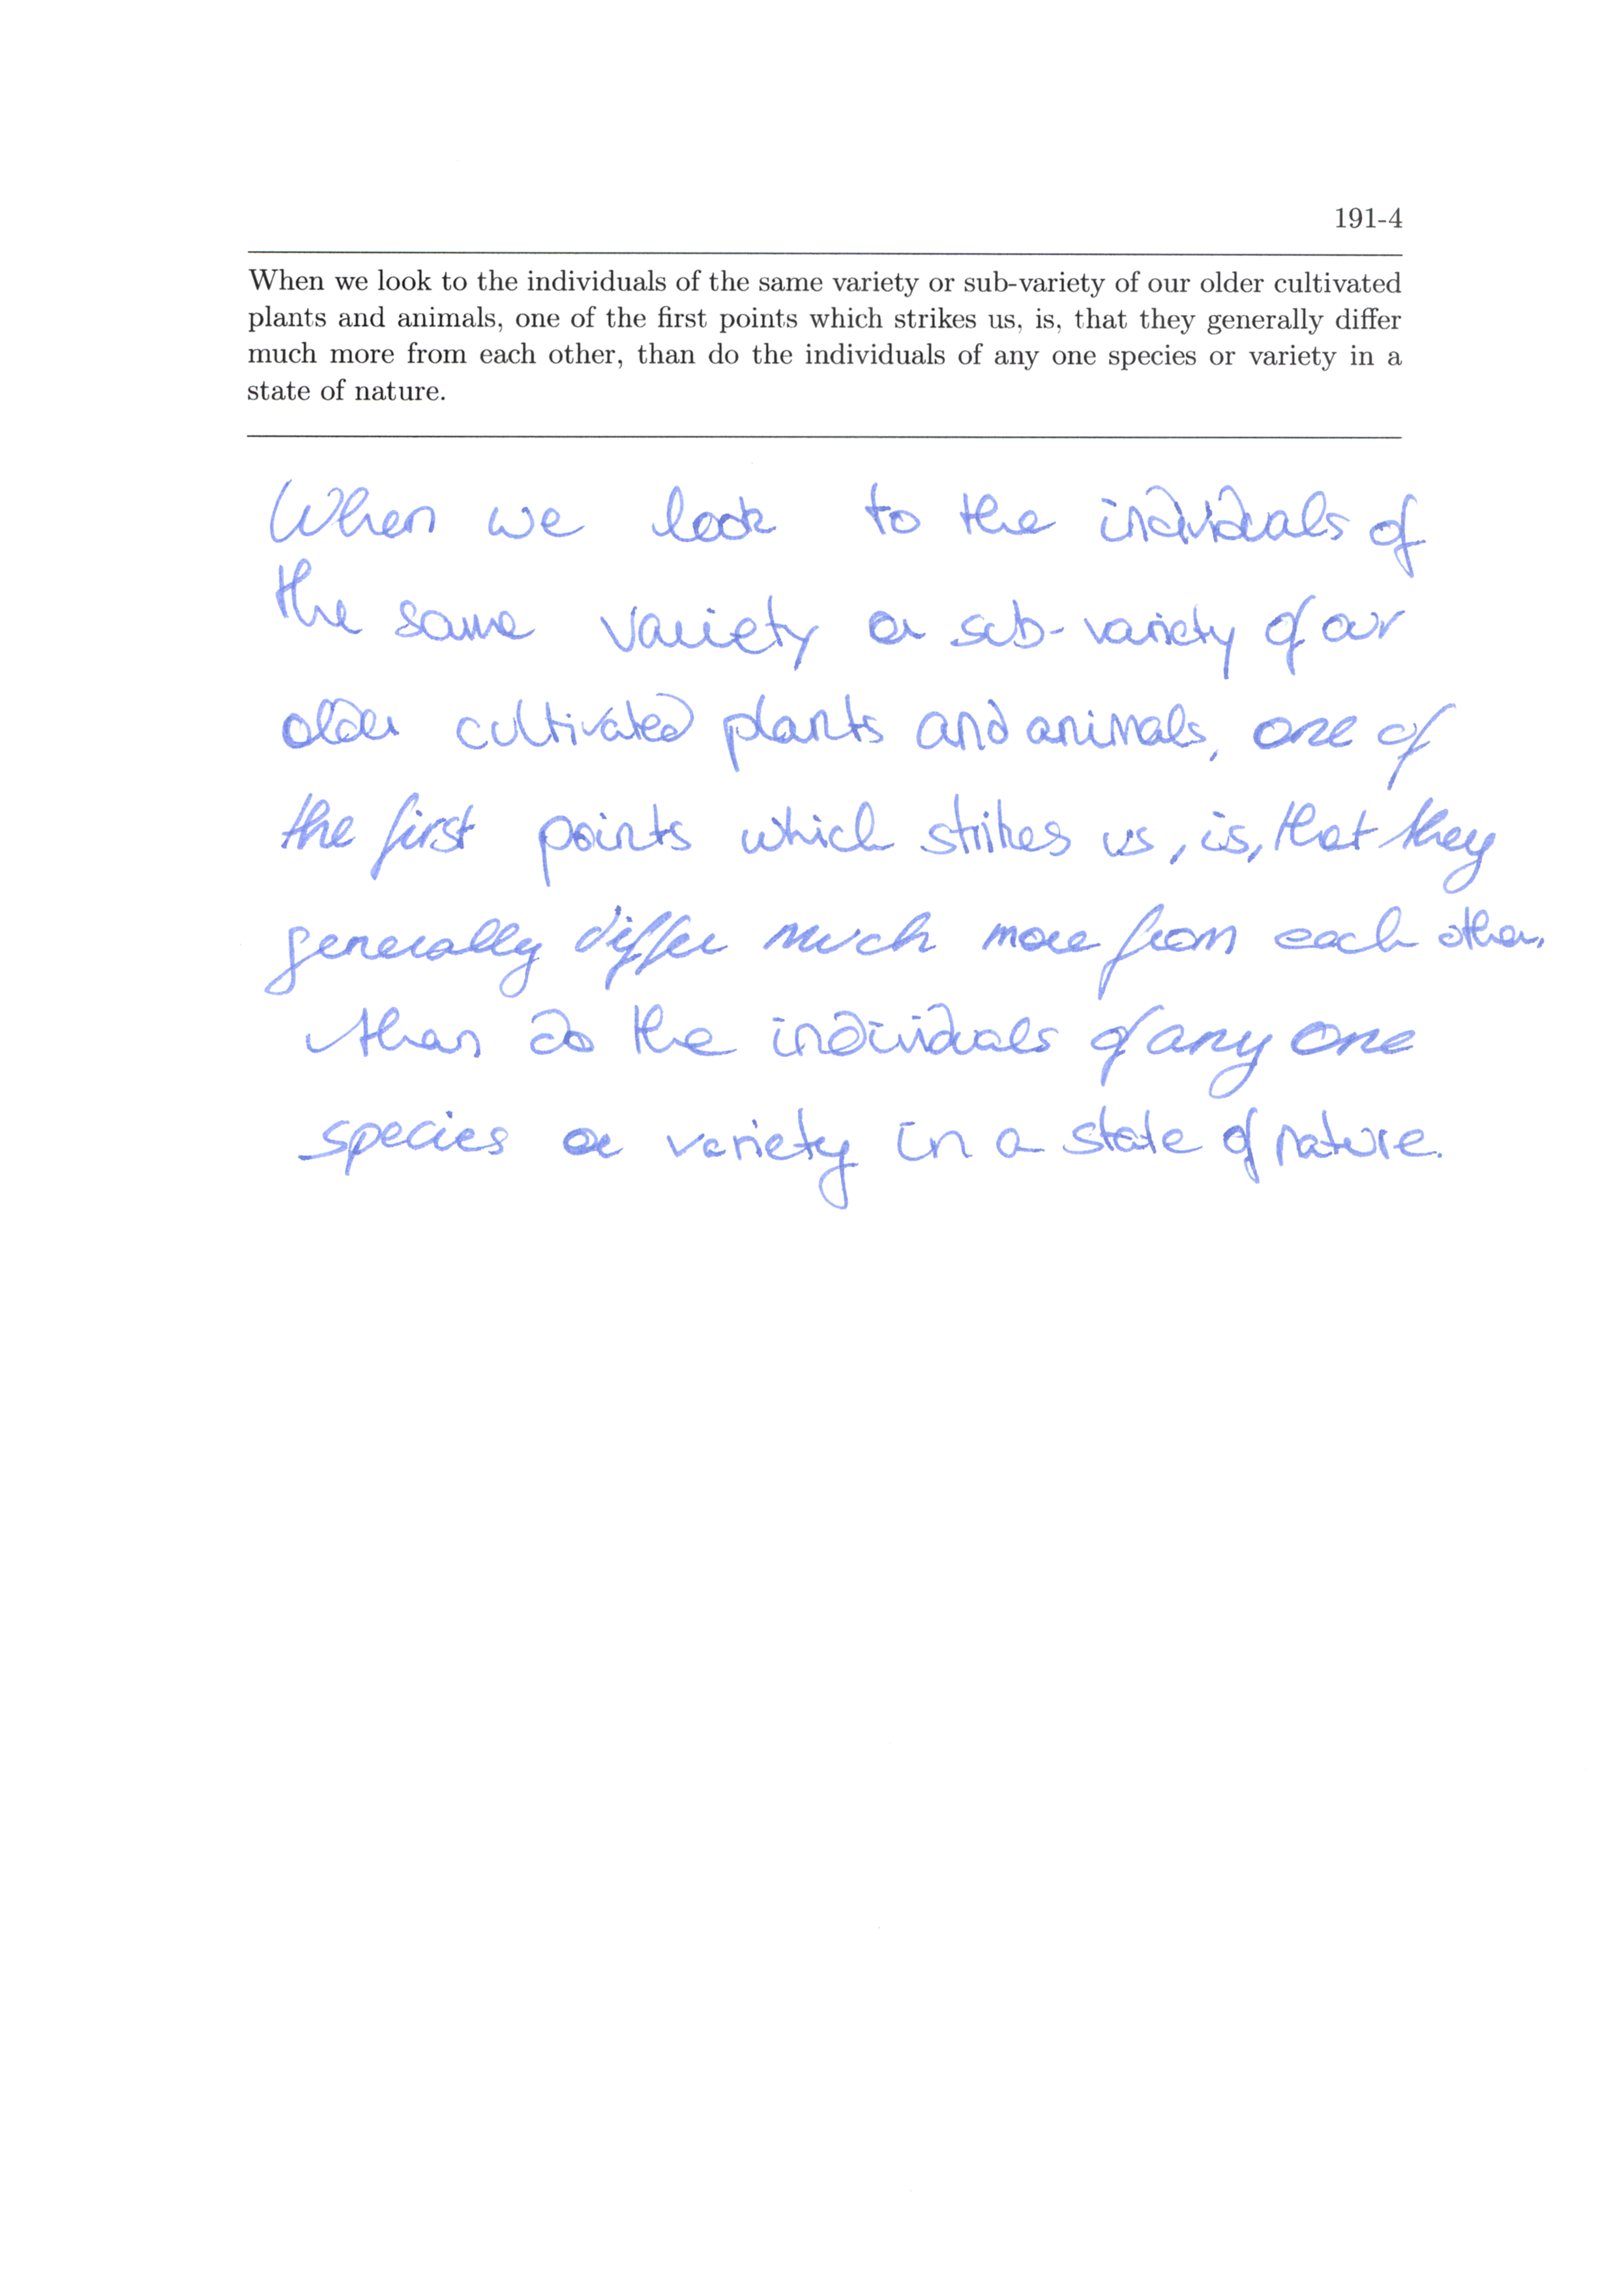 191-4
When we look to the individuals of the same variety or sub-variety of our older cultivated
plants and animals, one of the first points which strikes us, is, that they generally differ
much more from each other, than do the individuals of any one species or variety in a
state of nature.
When we look to the individuals of
the same variety or sub-variety of our
older cultivated plants and animals, one of
the first points which strikes us, is, that they
generally differ much more from each other,
than do the individuals of any one
species or variety in a state of nature.